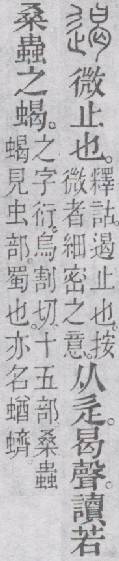 遏 微止也。釋詁。遏止也。按
微者細密之意。从辵。曷聲。讀若
桑蟲之蝎。之字衍。烏割切。十五部。桑蟲
蝎見虫部。蜀也。亦名蝤蠐